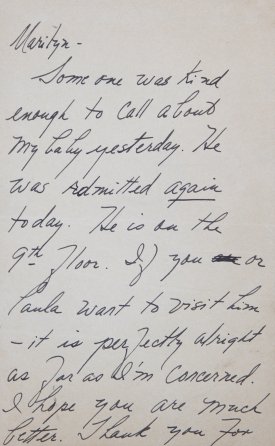 Marilyn -
Some one was kind
enough to call about
my baby yesterday. He
was admitted again
today. He is on the
9th floor. If you or
Paula want to visit him
- it is perfectly alright
as far as I'm concerned.
I hope you are much
better. Thank you for